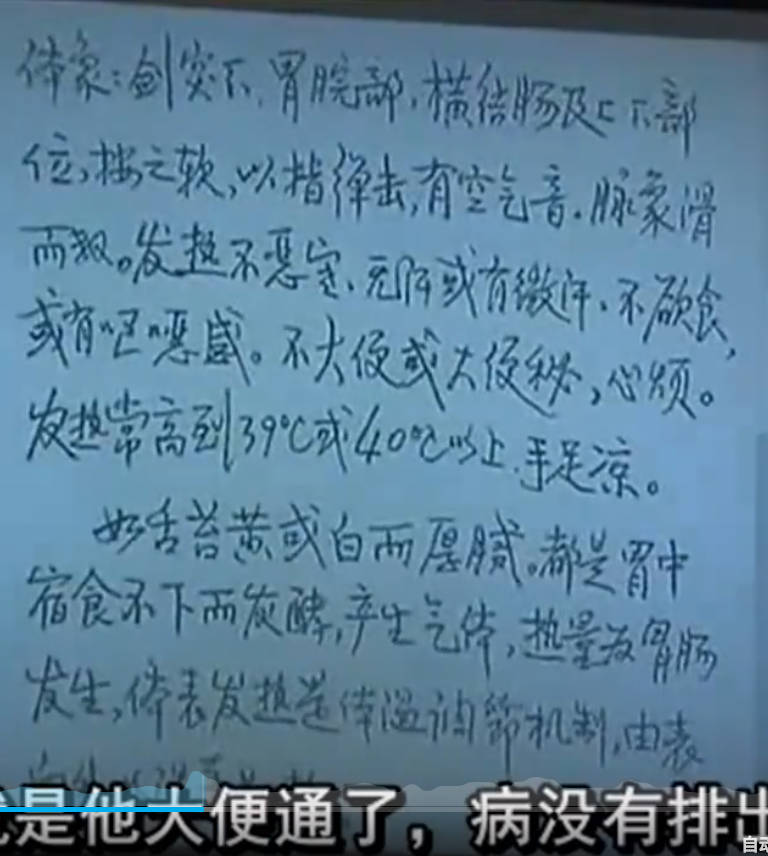 体象:剑突下,胃脘部,横结肠及上下部
位,按之软,以指弹击,有空气音.脉象滑
而数。发热不恶寒、无汗或有微汗.不欲食,
或有呕恶感。不大便或大便秘,心烦。
发热常高到39℃或40℃以上.手足凉。
如舌苔黄或白而厚腻。都是胃中
宿食不下而发酵,产生气体,热量及胃肠
发生,体表发热是体温调节机制,由表
是他大便通了,病没有排出
自动